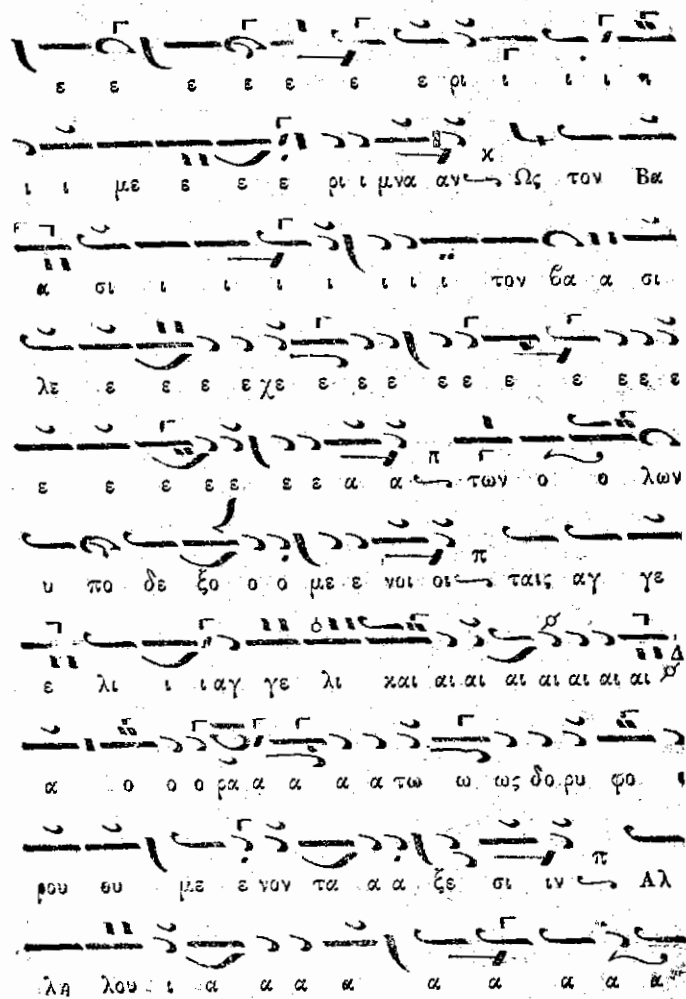 ε ε ε ε ε ε ε ρι ι ι ι η
ι ι με ε ε ε ρι ι μνα αν Ως τον Βα
α σι ι ι ι ι ι ι ι τον βα α σι
λε ε ε ε ε χε ε ε ε ε ε ε ε ε ε ε
ε ε ε ε ε ε ε α α των ο ο λων
υ πο δε ξο ο ο με ε νοι οι ταις αγ γε
ε λι ι ι αγ γε λι και αι αι αι αι αι αι αι
α ο ο ο ρα α α α α τω ω ως δο ρυ φο
ρου ου με ε νον τα α α ξε σι ιν Αλ
λη λου ι α α α α α α α α α